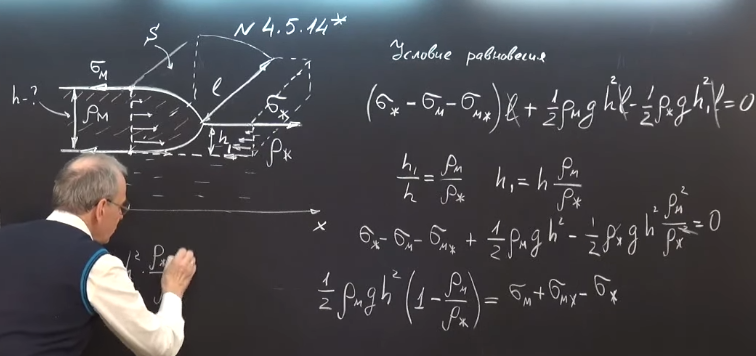 N 4.5.14*
S
σ_м
l
h-?
ρ_м
σ_ж
h₁
ρ_ж
x
Условие равновесия
(σ_ж - σ_м - σ_мж) l + 1/2 ρ_м g h² l - 1/2 ρ_ж g h₁² l = 0
h₁/h = ρ_м/ρ_ж   h₁ = h ρ_м/ρ_ж
σ_ж - σ_м - σ_мж + 1/2 ρ_м g h² - 1/2 ρ_ж g h² ρ_м²/ρ_ж² = 0
1/2 ρ_м g h² (1 - ρ_м/ρ_ж) = σ_м + σ_мж - σ_ж